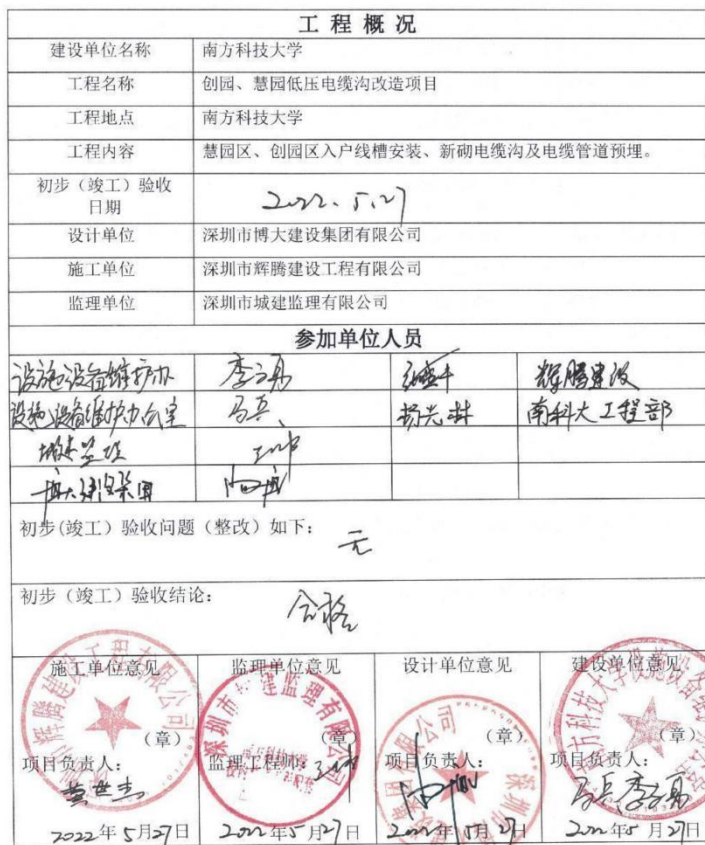 工程概况
建设单位名称 南方科技大学
工程名称 创园、慧园低压电缆沟改造项目
工程地点 南方科技大学
工程内容 慧园区、创园区入户线槽安装、新砌电缆沟及电缆管道预埋。
初步（竣工）验收
日期
2022.5.27
设计单位 深圳市博大建设集团有限公司
施工单位 深圳市辉腾建设工程有限公司
监理单位 深圳市城建监理有限公司
参加单位人员
设施设备维护办 李方勇 辉腾建设
设施设备维护办公室 马兵 杨光林 南科大工程部
城建监理
博大建设集团
初步(竣工）验收问题（整改）如下： 无
初步（竣工）验收结论： 合格
施工单位意见 监理单位意见 设计单位意见 建设单位意见
（章） （章） （章） （章）
项目负责人： 监理工程师： 项目负责人： 项目负责人：
黄世杰 马兵 李方勇
2022年5月27日 2022年5月27日 2022年5月27日 2022年5月27日